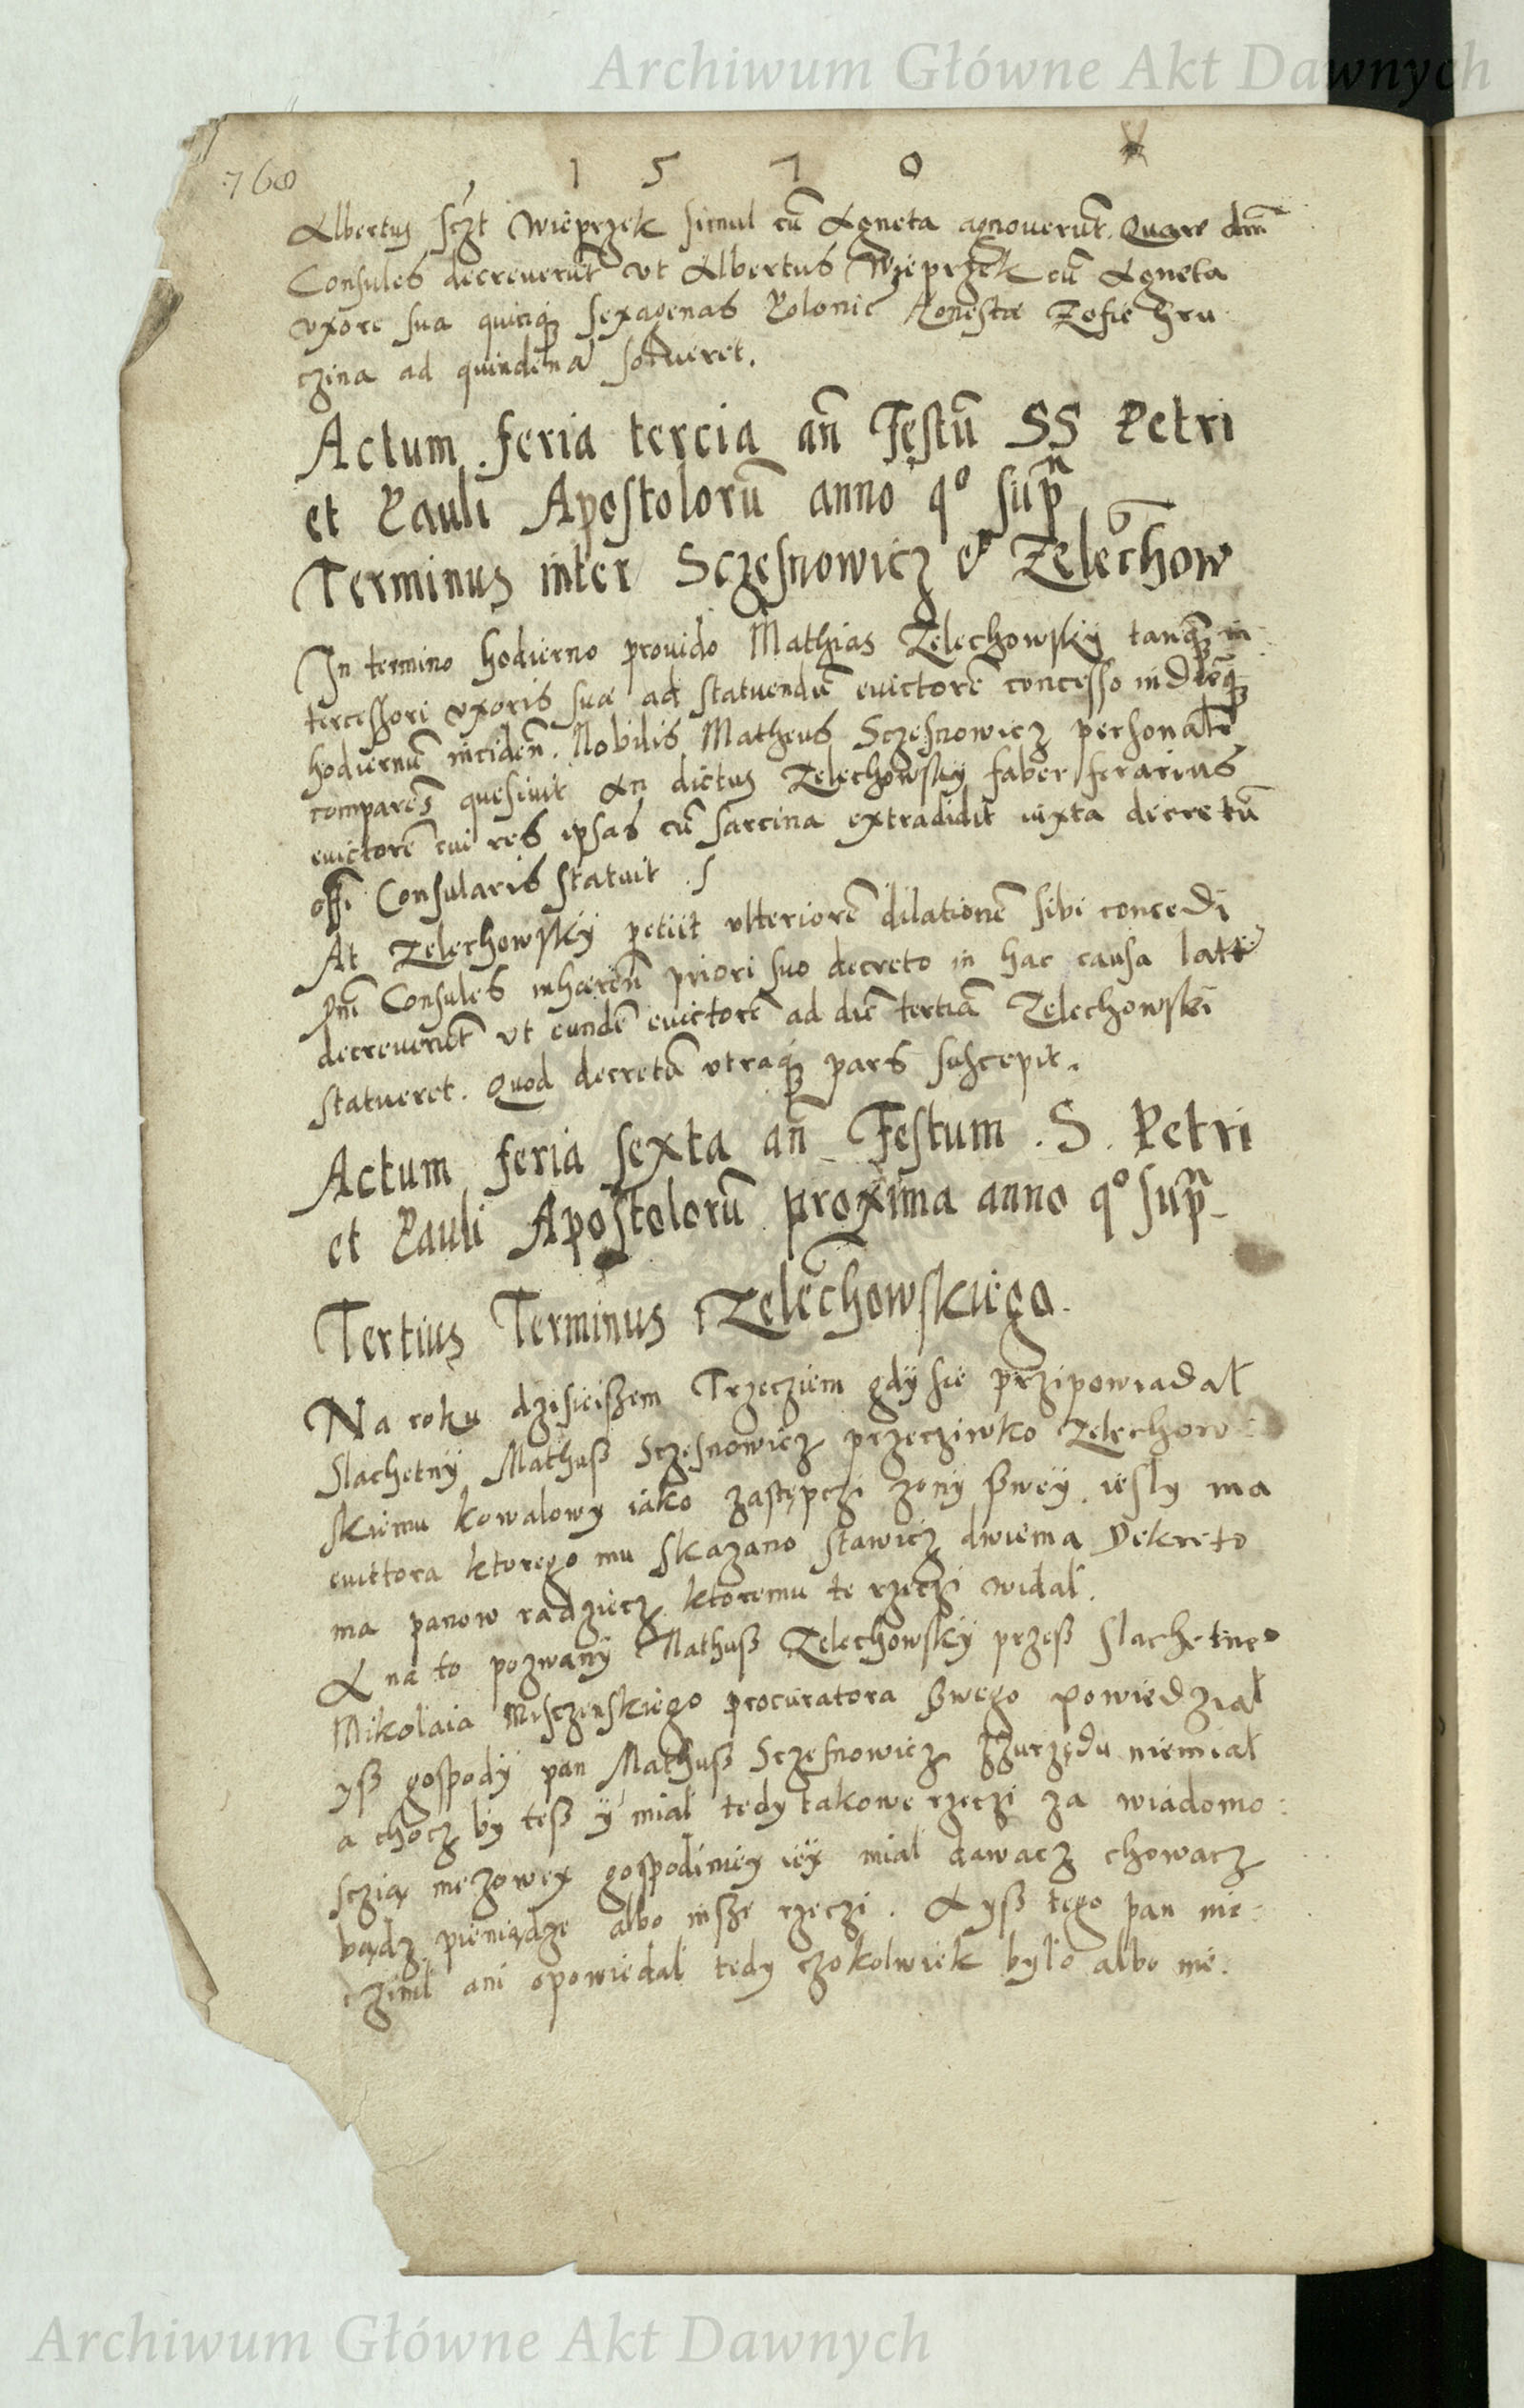 Archiwum Główne Akt Dawnych
768
1 5 7 0
Albertus sczt Wieprzek simul cū Agneta agnoverūt. Quare dnī
Consules decreverūt vt Albertus Wieprzek cū Agneta
vxore sua quinq sexagenas Polonic honestæ Zofie Hru
czina ad quindenā solveret.
Actum feria tercia añ Festū SS Petri
et Pauli Apostolorū anno qº supª
Terminus inter Sczesnowicz et Zelechow
In termino hodierno provido Mathias Zelechowsky tanq̄ in
tercessori vxoris suæ ad statuendū evictorē concesso in diēq
hodiernū inciden̄. Nobilis Matheus Sczesnowicz personalr
comparēs quesivit An dictus Zelechowsky faber ferarius
evictorē cui res ipsas cū sarcina extradidit iuxta decretū
offi Consularis statuit
At Zelechowsky petiit vlteriorē dilationē sibi concedi
Dnī Consules inhæren̄ priori suo decreto in hac causa latt
decreverūt vt eundē evictorē ad diē tertiā Zelechowski
statueret. Quod decretū vtraq pars suscepit.
Actum feria sexta añ Festum . S . Petri
et Pauli Apostolorū proxima anno qº supª
Tertius Terminus Zelechowskiego
Na roku dzisieiszem Trzecziem gdÿ sie przipowiadał
Slachetnÿ Mathuß Sczesnowicz przecziwko Zelechow
skiemu kowalowy iako zastępczi zonÿ swey. iesly ma
evictora ktorego mu skazano stawicz dwiema Dekreto
ma panow radziecz ktoremu te rzeczi widał.
A na to pozwanÿ Mathuß Zelechowskÿ przeß Slachetneº
Mikołaia Misczenskiego procuratora swego powiedział
yß gospodÿ pan Mathuß Sczesnowicz zurzędu niemiał
a chocz by teß ÿ miał tedy takowe rzeczi za wiadomo
sczią mezowey gospodiniey iey miał dawacz chowacz
bądz pieniądze albo insze rzeczi. A yß tego pan nie
czinił ani opowiedał tedy czokolwiek było albo nie.
Archiwum Główne Akt Dawnych